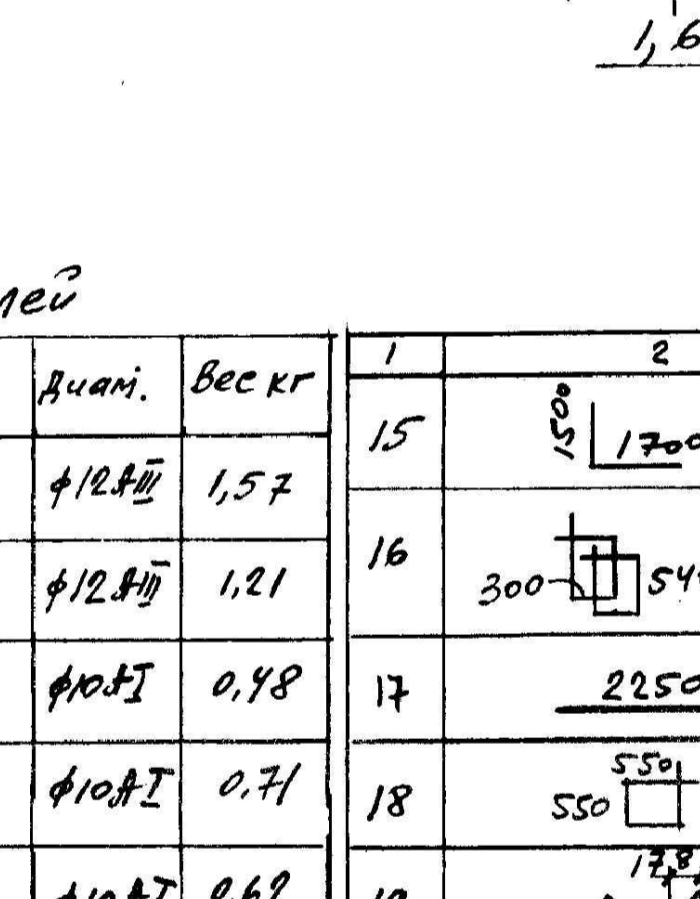 1,6
лей
Диам. Вес кг
ф12АIII 1,57
ф12АIII 1,21
ф10АI 0,48
ф10АI 0,71
ф10АI 0,62
1 2
15 1500 1700
16 300 54
17 2250
18 550 550
17,8